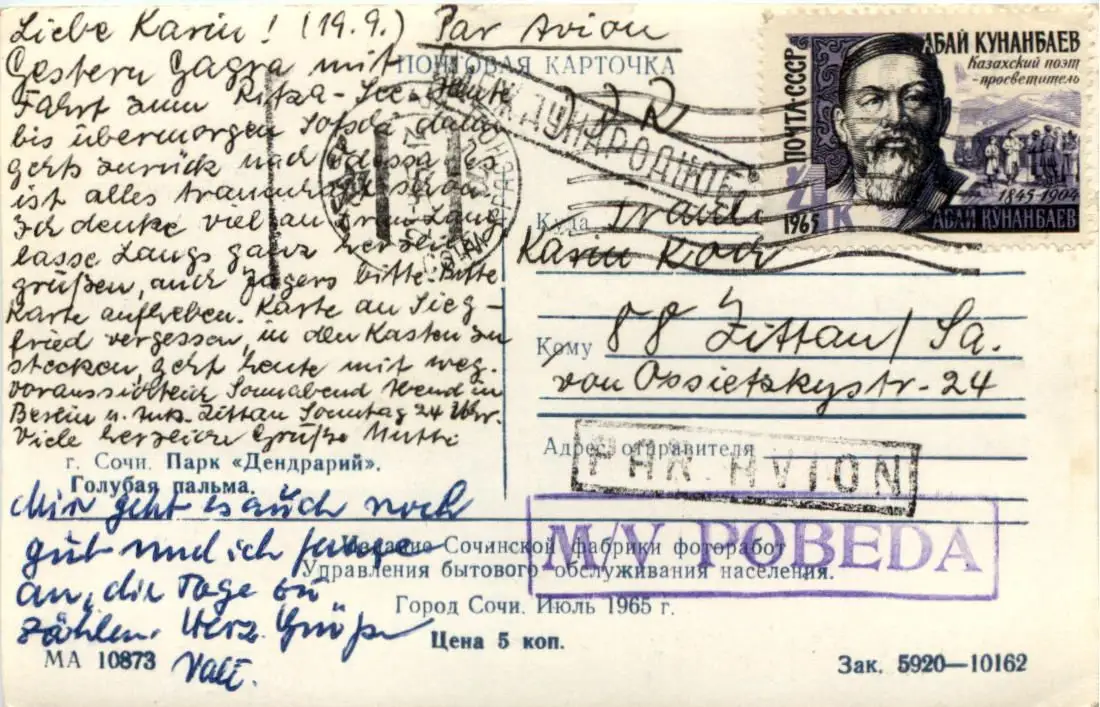 Liebe Karin! (19.9.) Par Avion
Gestern Gagra mit
Fahrt zum Ritza-See. Heute
bis übermorgen Sotschi dann
geht's zurück nach Odessa. Es
ist alles
Ich denke viel an
lasse Langs ganz herzlich
grüßen, auch Jägers bitte. Bitte
Karte aufheben. Karte an Sieg-
fried vergessen, in den Kasten zu
stecken, geht heute mit weg.
voraussichtlich Sonnabend Abend in
Berlin u. Zittau Sonntag 24 Uhr.
Viele herzliche Grüße Mutti
г. Сочи. Парк «Дендрарий».
Голубая пальма.
Mir geht es auch noch
gut und ich fange
an, die Tage zu
zählen. Herz. Grüße
Vati.
ПОЧТОВАЯ КАРТОЧКА
МЕЖДУНАРОДНОЕ
DDR
АБАЙ КУНАНБАЕВ
Казахский поэт
-просветитель
ПОЧТА·СССР
4К
1965
1845-1904
АБАЙ КУНАНБАЕВ
Куда
Fräulein
Karin Koch
88 Zittau/Sa.
Кому
von Ossietzkystr-24
Адрес отправителя
PAR AVION
M/V POBEDA
Издание Сочинской фабрики фоторабот
Управления бытового обслуживания населения.
Город Сочи. Июль 1965 г.
Цена 5 коп.
МА 10873
Зак. 5920—10162